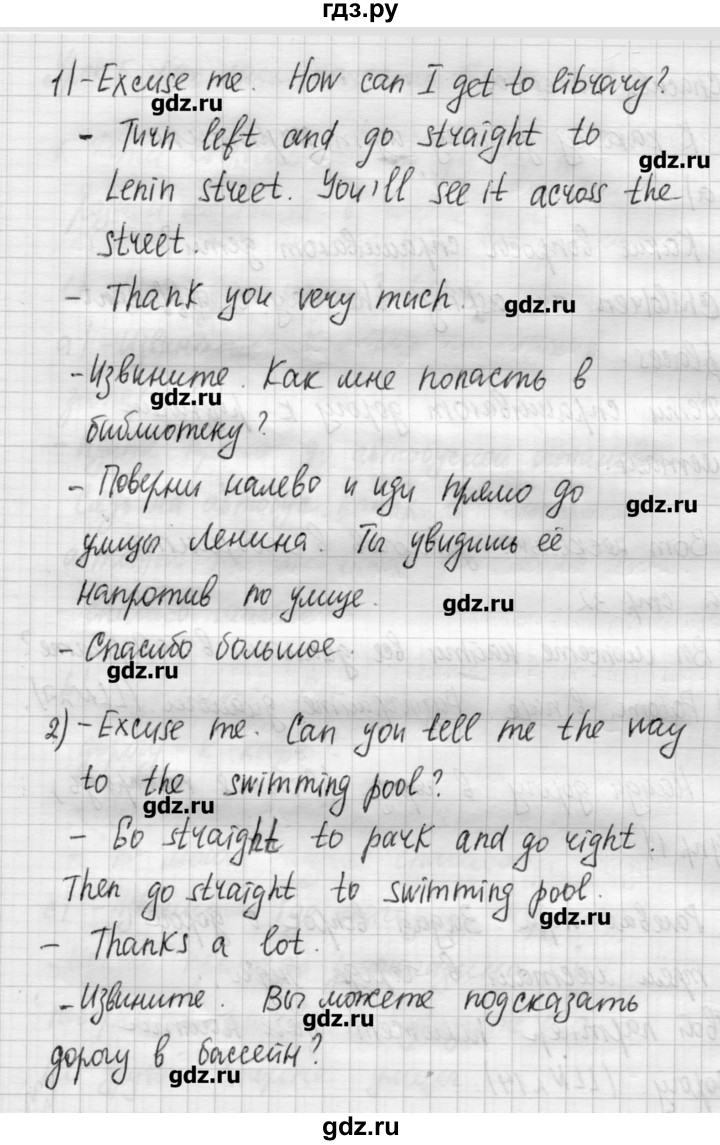 гдз.ру
1) - Excuse me. How can I get to library?
gdz.ru
- Turn left and go straight to
gdz.ru
Lenin street. You'll see it across the
street.
- Thank you very much.
gdz.ru
- Извините. Как мне попасть в
gdz.ru
библиотеку?
- Поверни налево и иди прямо до
gdz.ru
улицы Ленина. Ты увидишь её
напротив по улице.
gdz.ru
- Спасибо большое.
gdz.ru
2) - Excuse me. Can you tell me the way
to the swimming pool?
gdz.ru
- Go straight to park and go right.
Then go straight to swimming pool.
gdz.ru
- Thanks a lot.
- Извините. Вы можете подсказать
gdz.ru
дорогу в бассейн?
gdz.ru
gdz.ru